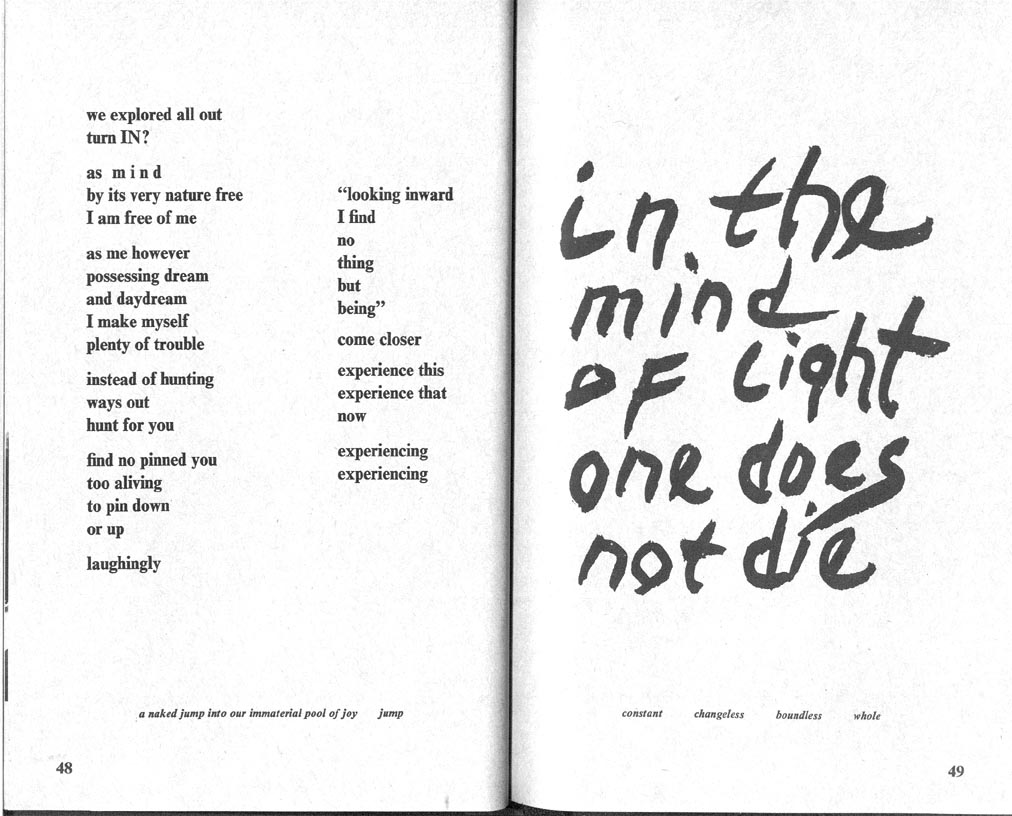 we explored all out
turn IN?
as m i n d
by its very nature free
I am free of me
as me however
possessing dream
and daydream
I make myself
plenty of trouble
instead of hunting
ways out
hunt for you
find no pinned you
too aliving
to pin down
or up
laughingly
“looking inward
I find
no
thing
but
being”
come closer
experience this
experience that
now
experiencing
experiencing
a naked jump into our immaterial pool of joy jump
48
in the
mind
of light
one does
not die
constant changeless boundless whole
49